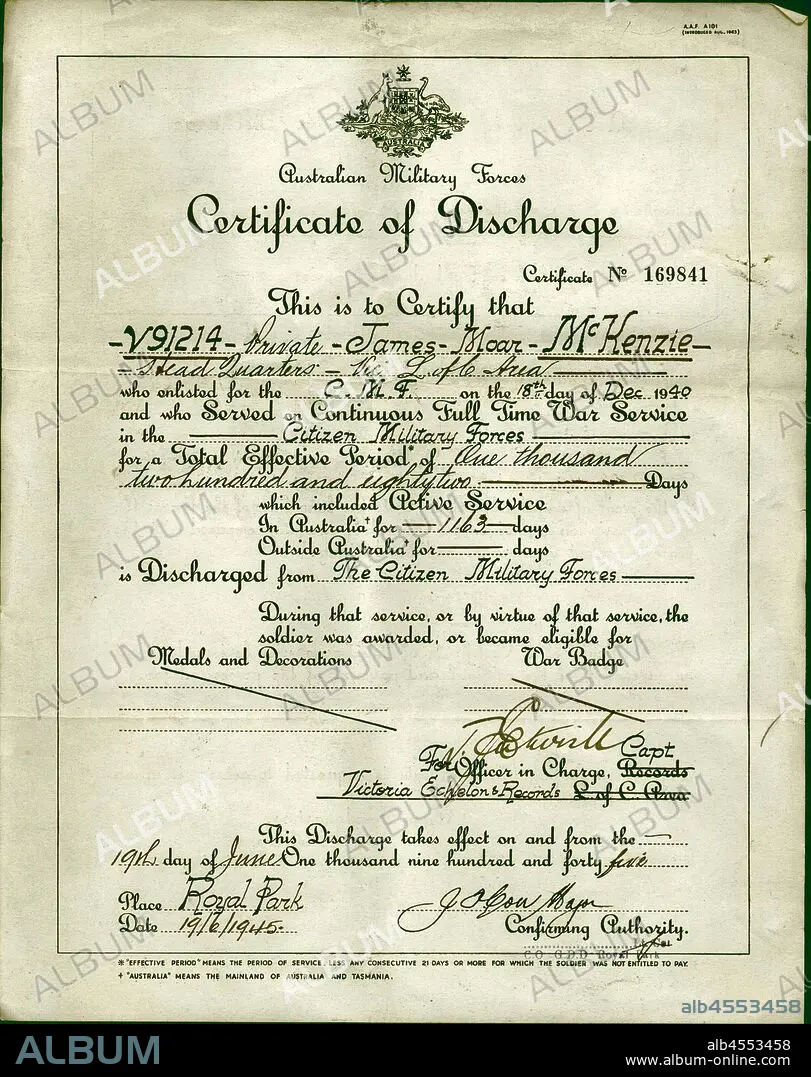 A.A.F. A101
(INTRODUCED AUG., 1943)
AUSTRALIA
Australian Military Forces
Certificate of Discharge
Certificate No 169841
This is to Certify that
-V91214- Private - James - Moar - McKenzie -
- Head Quarters - Vic L of C Area
who enlisted for the C. M. F. on the 18th day of Dec 1940
and who Served on Continuous Full Time War Service
in the Citizen Military Forces
for a Total Effective Period* of One thousand
two hundred and eighty two Days
which included Active Service
In Australia† for 1163 days
Outside Australia† for days
is Discharged from The Citizen Military Forces
During that service, or by virtue of that service, the
soldier was awarded, or became eligible for
Medals and Decorations War Badge
Capt
For Officer in Charge, Records
Victoria Echelon & Records L. of C. Area
This Discharge takes effect on and from the
19th day of June One thousand nine hundred and forty five
Place Royal Park
Date 19/6/1945. Major
Confirming Authority.
C.O. G.D.D. Royal Park
* "EFFECTIVE PERIOD" MEANS THE PERIOD OF SERVICE LESS ANY CONSECUTIVE 21 DAYS OR MORE FOR WHICH THE SOLDIER WAS NOT ENTITLED TO PAY.
† "AUSTRALIA" MEANS THE MAINLAND OF AUSTRALIA AND TASMANIA.
alb4553458
ALBUM
alb4553458
www.album-online.com